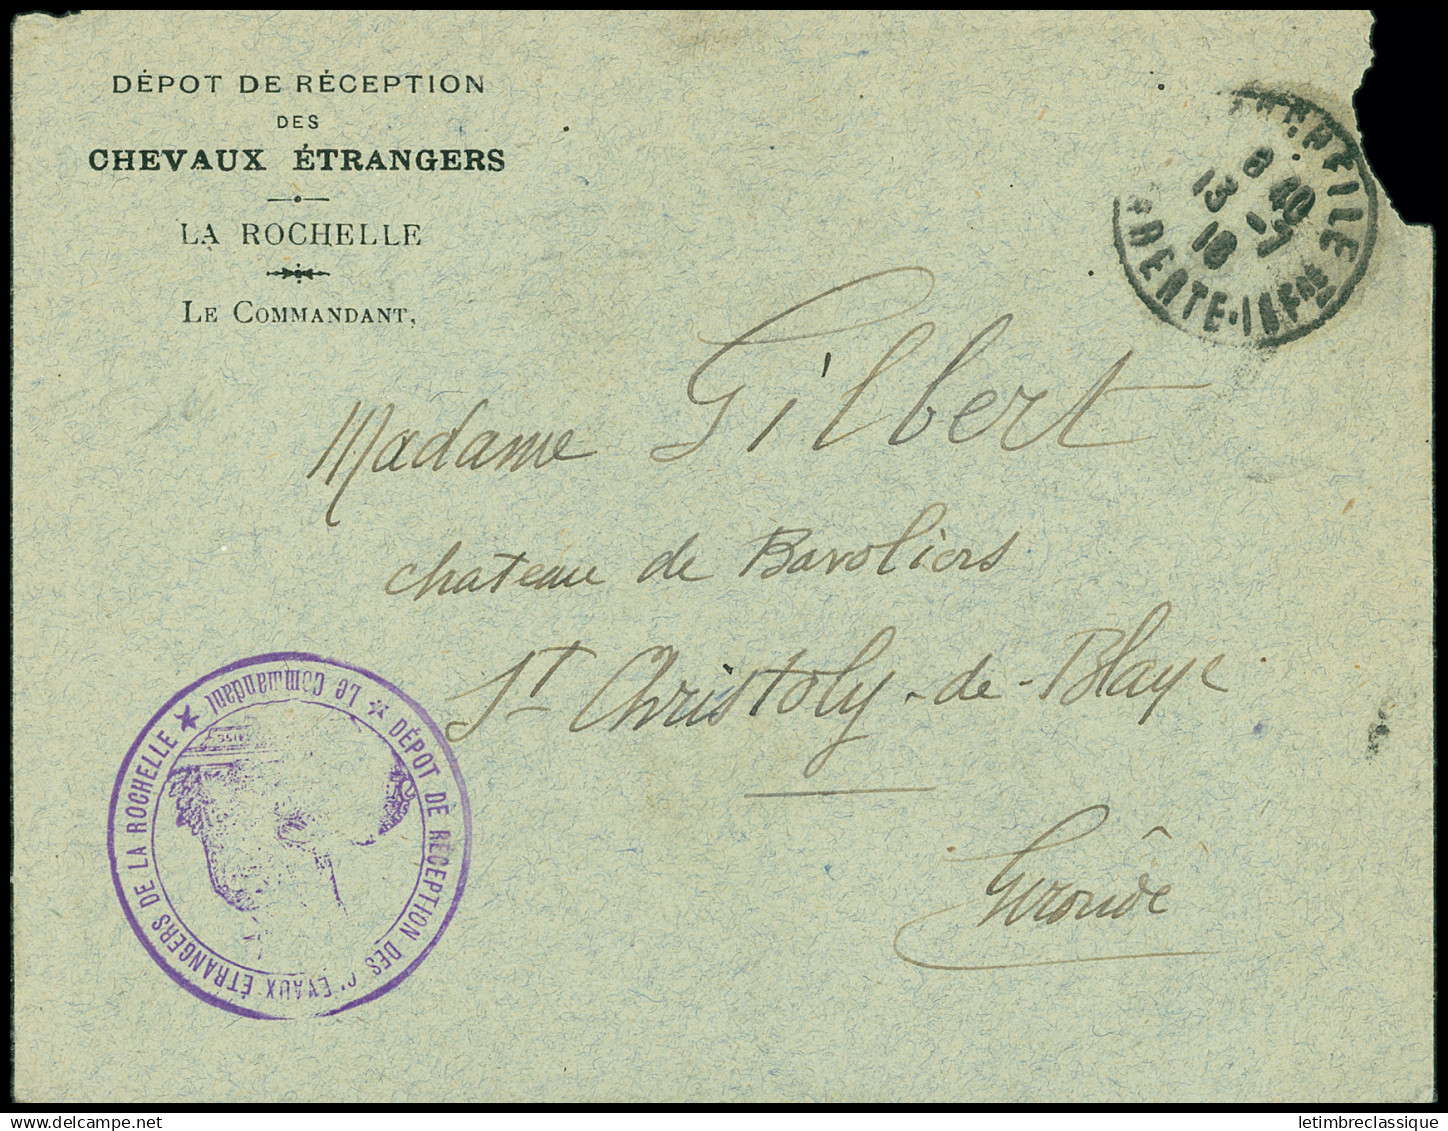 DÉPOT DE RÉCEPTION
DES
CHEVAUX ÉTRANGERS
LA ROCHELLE
LE COMMANDANT,
8 40
13 - 7
CHARENTE-INFRE
Madame Gilbert
chateau de Bavoliers
St Christoly-de-Blaye
Gironde
★ DÉPOT DE RÉCEPTION DES CHEVAUX ÉTRANGERS DE LA ROCHELLE ★
Le Commandant
letimbreclassique